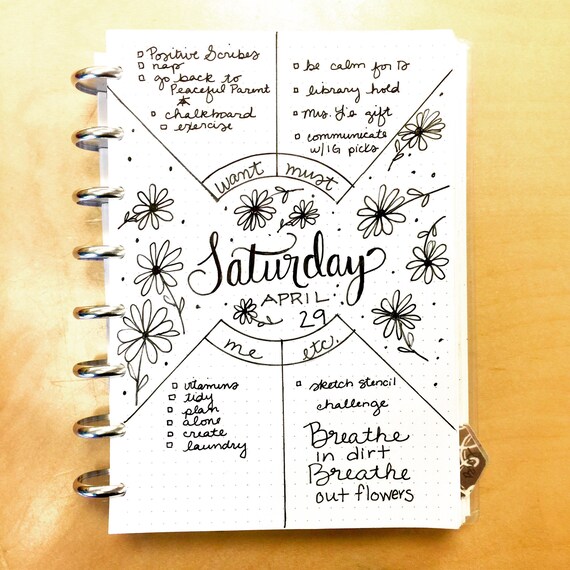 Positive Scribes
nap
go back to
Peaceful Parent
chalkboard
exercise
be calm for B
library hold
Mrs. L's gift
communicate
w/IG picks
want
must
Saturday
APRIL
29
me
etc.
vitamins
tidy
plan
alone
create
laundry
sketch stencil
challenge
Breathe
in dirt
Breathe
out flowers